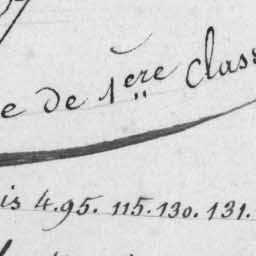 e de 1ère Class
is 4.95. 115. 130. 131.